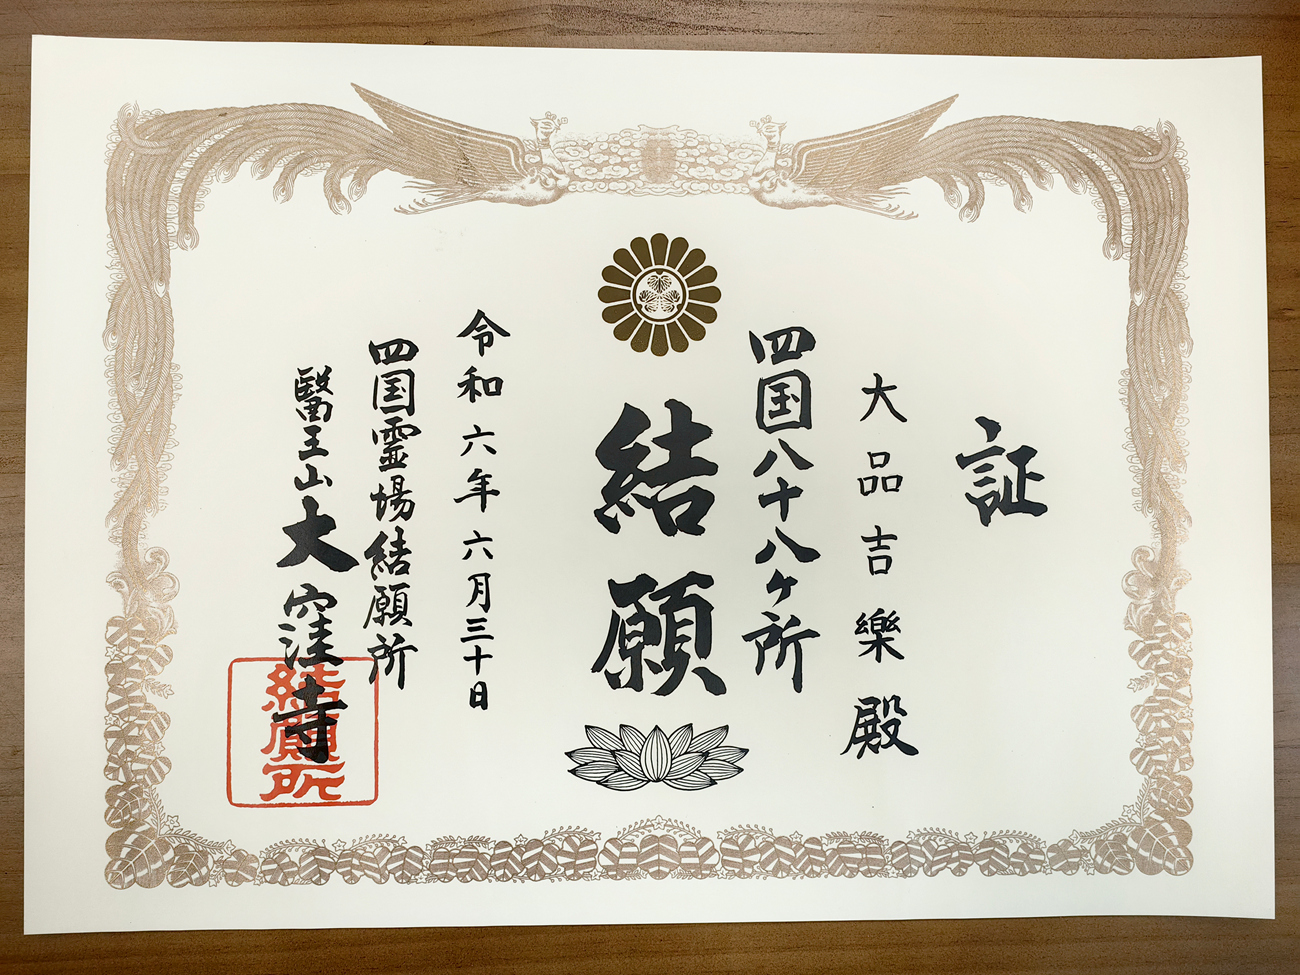 証
大品吉樂殿
四国八十八ヶ所
結願
令和六年六月三十日
四国霊場結願所
醫王山大窪寺
結願所